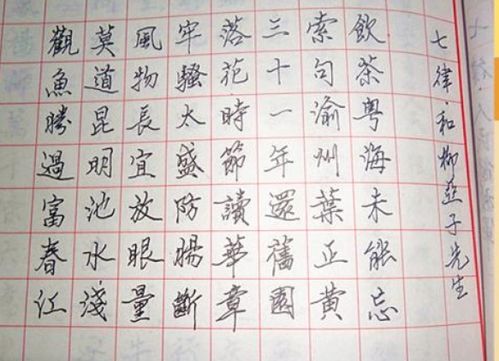 七律·和柳亞子先生
飲茶粵海未能忘
索句渝州葉正黃
三十一年還舊國
落花時節讀華章
牢騷太盛防腸斷
風物長宜放眼量
莫道昆明池水淺
觀魚勝過富春江